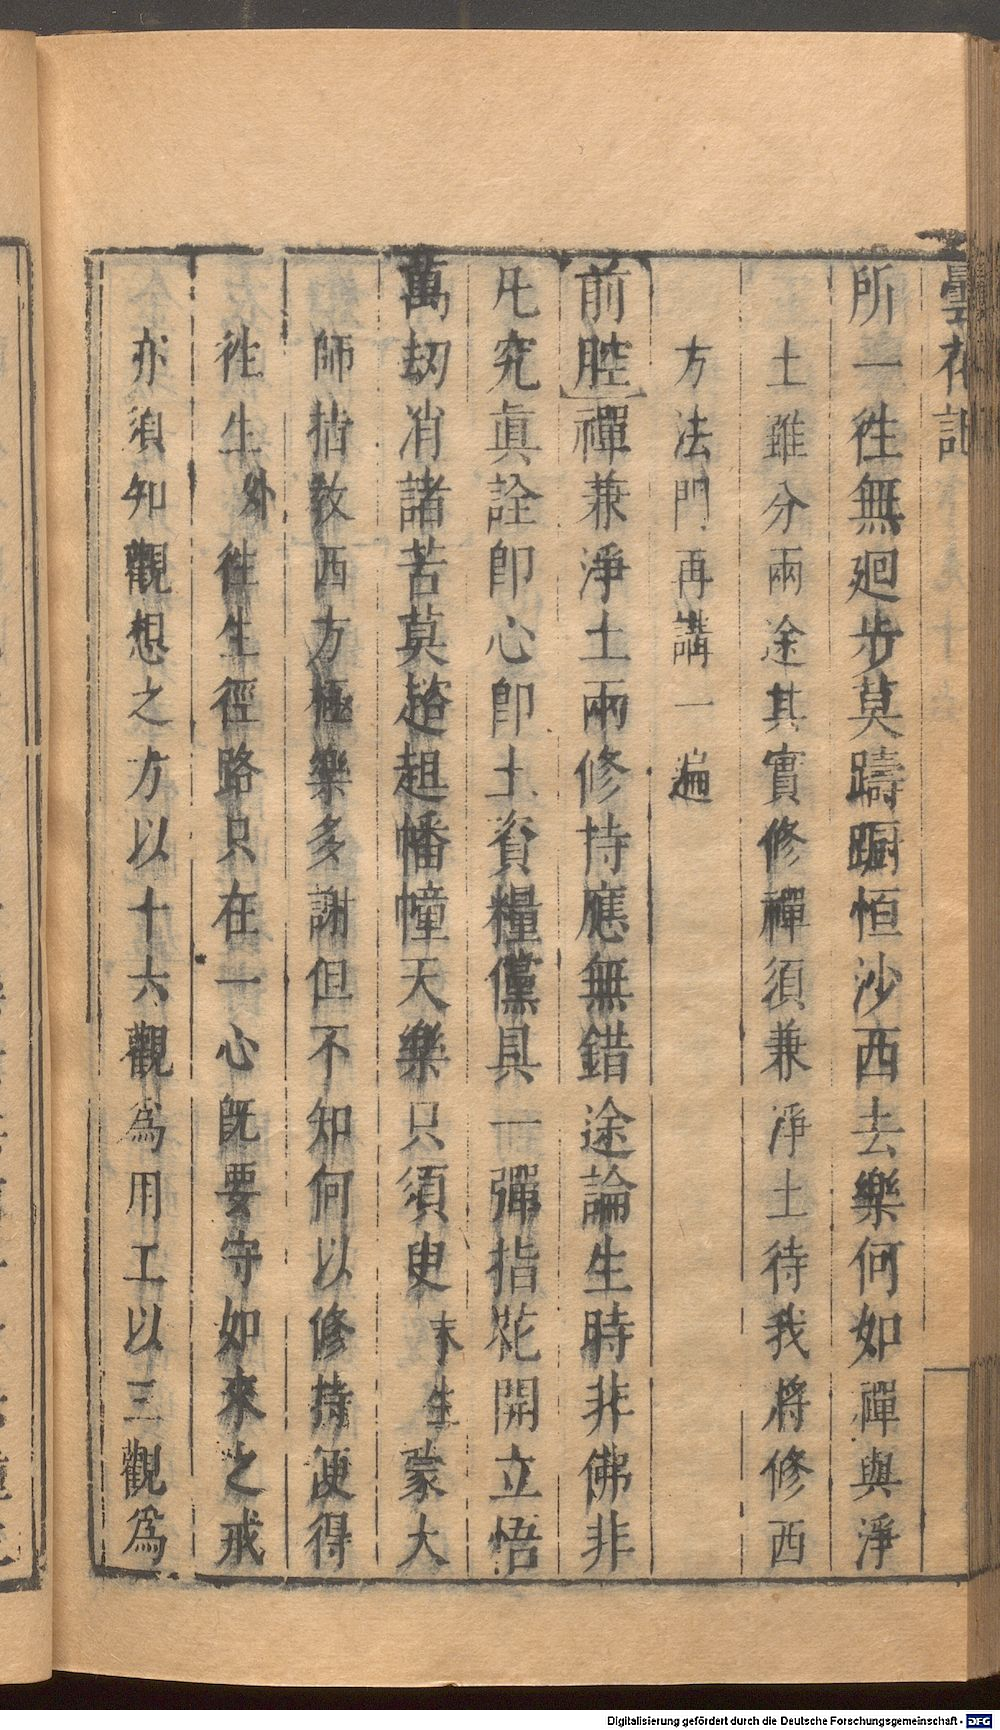 曇花記
所一徃無廻步莫躊躕恒沙西去樂何如禪與淨
土雖分兩途其實修禪須兼淨土待我將修西
方法門再講一遍
前腔禪兼淨土兩修持應無錯途論生時非佛非
凡究眞詮卽心卽土資糧儻具一彈指花開立悟
萬刼消諸苦莫趦趄幡幢天樂只須臾末生蒙大
師指教西方極樂多謝但不知何以修持便得
徃生外徃生徑路只在一心旣要守如來之戒
亦須知觀想之方以十六觀爲用工以三觀爲
Digitalisierung gefördert durch die Deutsche Forschungsgemeinschaft - DFG